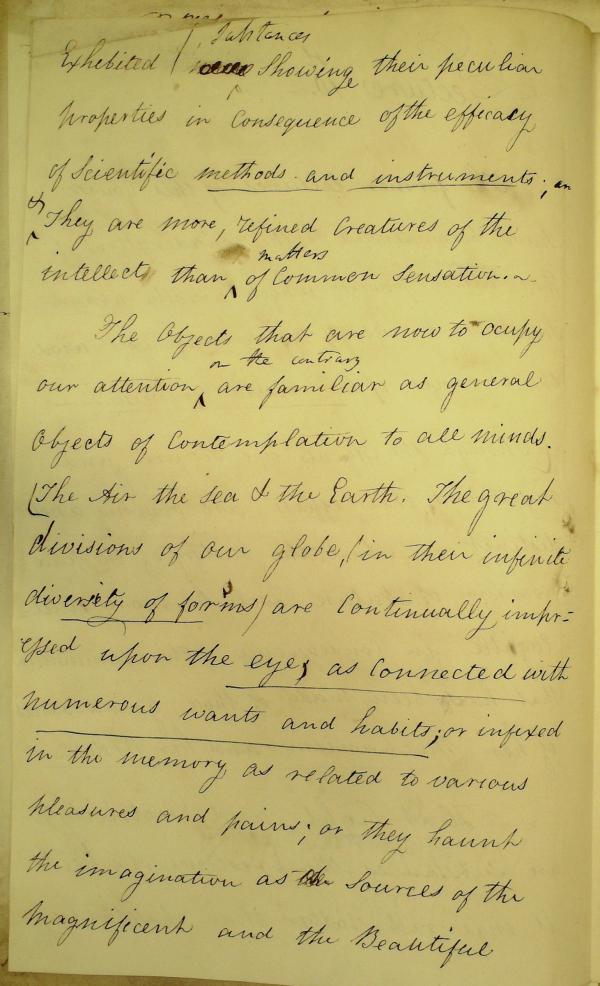 Substances
Exhibited showing their peculiar
properties in Consequence of the efficacy
of Scientific methods and instruments; an
& They are more, refined Creatures of the
matters
intellect than of Common Sensation.
The Objects that are now to ocupy
on the contrary
our attention, are familiar as general
Objects of Contemplation to all minds.
(The Air the sea & the Earth. The great
divisions of our globe, (in their infinite
diversity of forms) are Continually impr=
essed upon the eye, as Connected with
numerous wants and habits; or infixed
in the memory as related to various
pleasures and pains; or they haunt
the imagination as Sources of the
Magnificent and the Beautiful